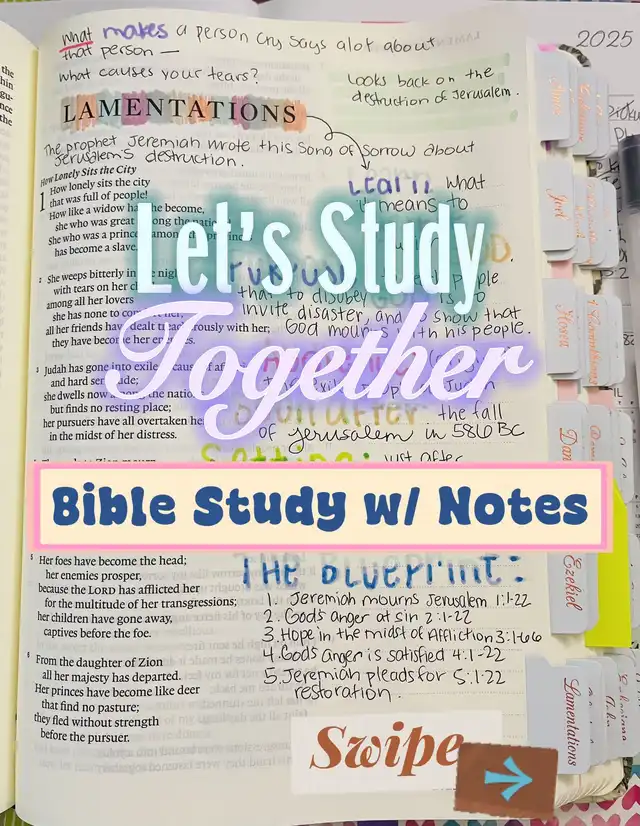 What makes a person cry says alot about
that person —
what causes your tears?
2025
Looks back on the
destruction of Jerusalem.
LAMENTATIONS
The prophet Jeremiah wrote this song of sorrow about
Jerusalem's destruction.
How Lonely Sits the City
1 How lonely sits the city
that was full of people!
How like a widow has she become,
she who was great among the
She who was a princess among the
has become a slave.
what
it means to
Let's Study
Together
2 She weeps bitterly in the night
with tears on her
among all her lovers
she has none to comfort her;
all her friends have dealt treacherously with her;
they have become her enemies.
people
that to disobey God is to
invite disaster, and to show that
God mourns with his people.
3 Judah has gone into exile because of
and hard servitude;
she dwells now among the nations
but finds no resting place;
her pursuers have all overtaken her
in the midst of her distress.
the fall
of Jerusalem in 586 BC
Setting: just after
Bible Study w/ Notes
5 Her foes have become the head;
her enemies prosper,
because the LORD has afflicted her
for the multitude of her transgressions;
her children have gone away,
captives before the foe.
6 From the daughter of Zion
all her majesty has departed.
Her princes have become like deer
that find no pasture;
they fled without strength
before the pursuer.
THE Blueprint:
1. Jeremiah mourns Jerusalem 1:1-22
2. Gods anger at sin 2:1-22
3. Hope in the midst of Affliction 3:1-66
4. Gods anger is satisfied 4:1-22
5. Jeremiah pleads for 5:1-22
restoration.
Joel
Hosea
Dan
Ezekiel
Lamentations
Swipe